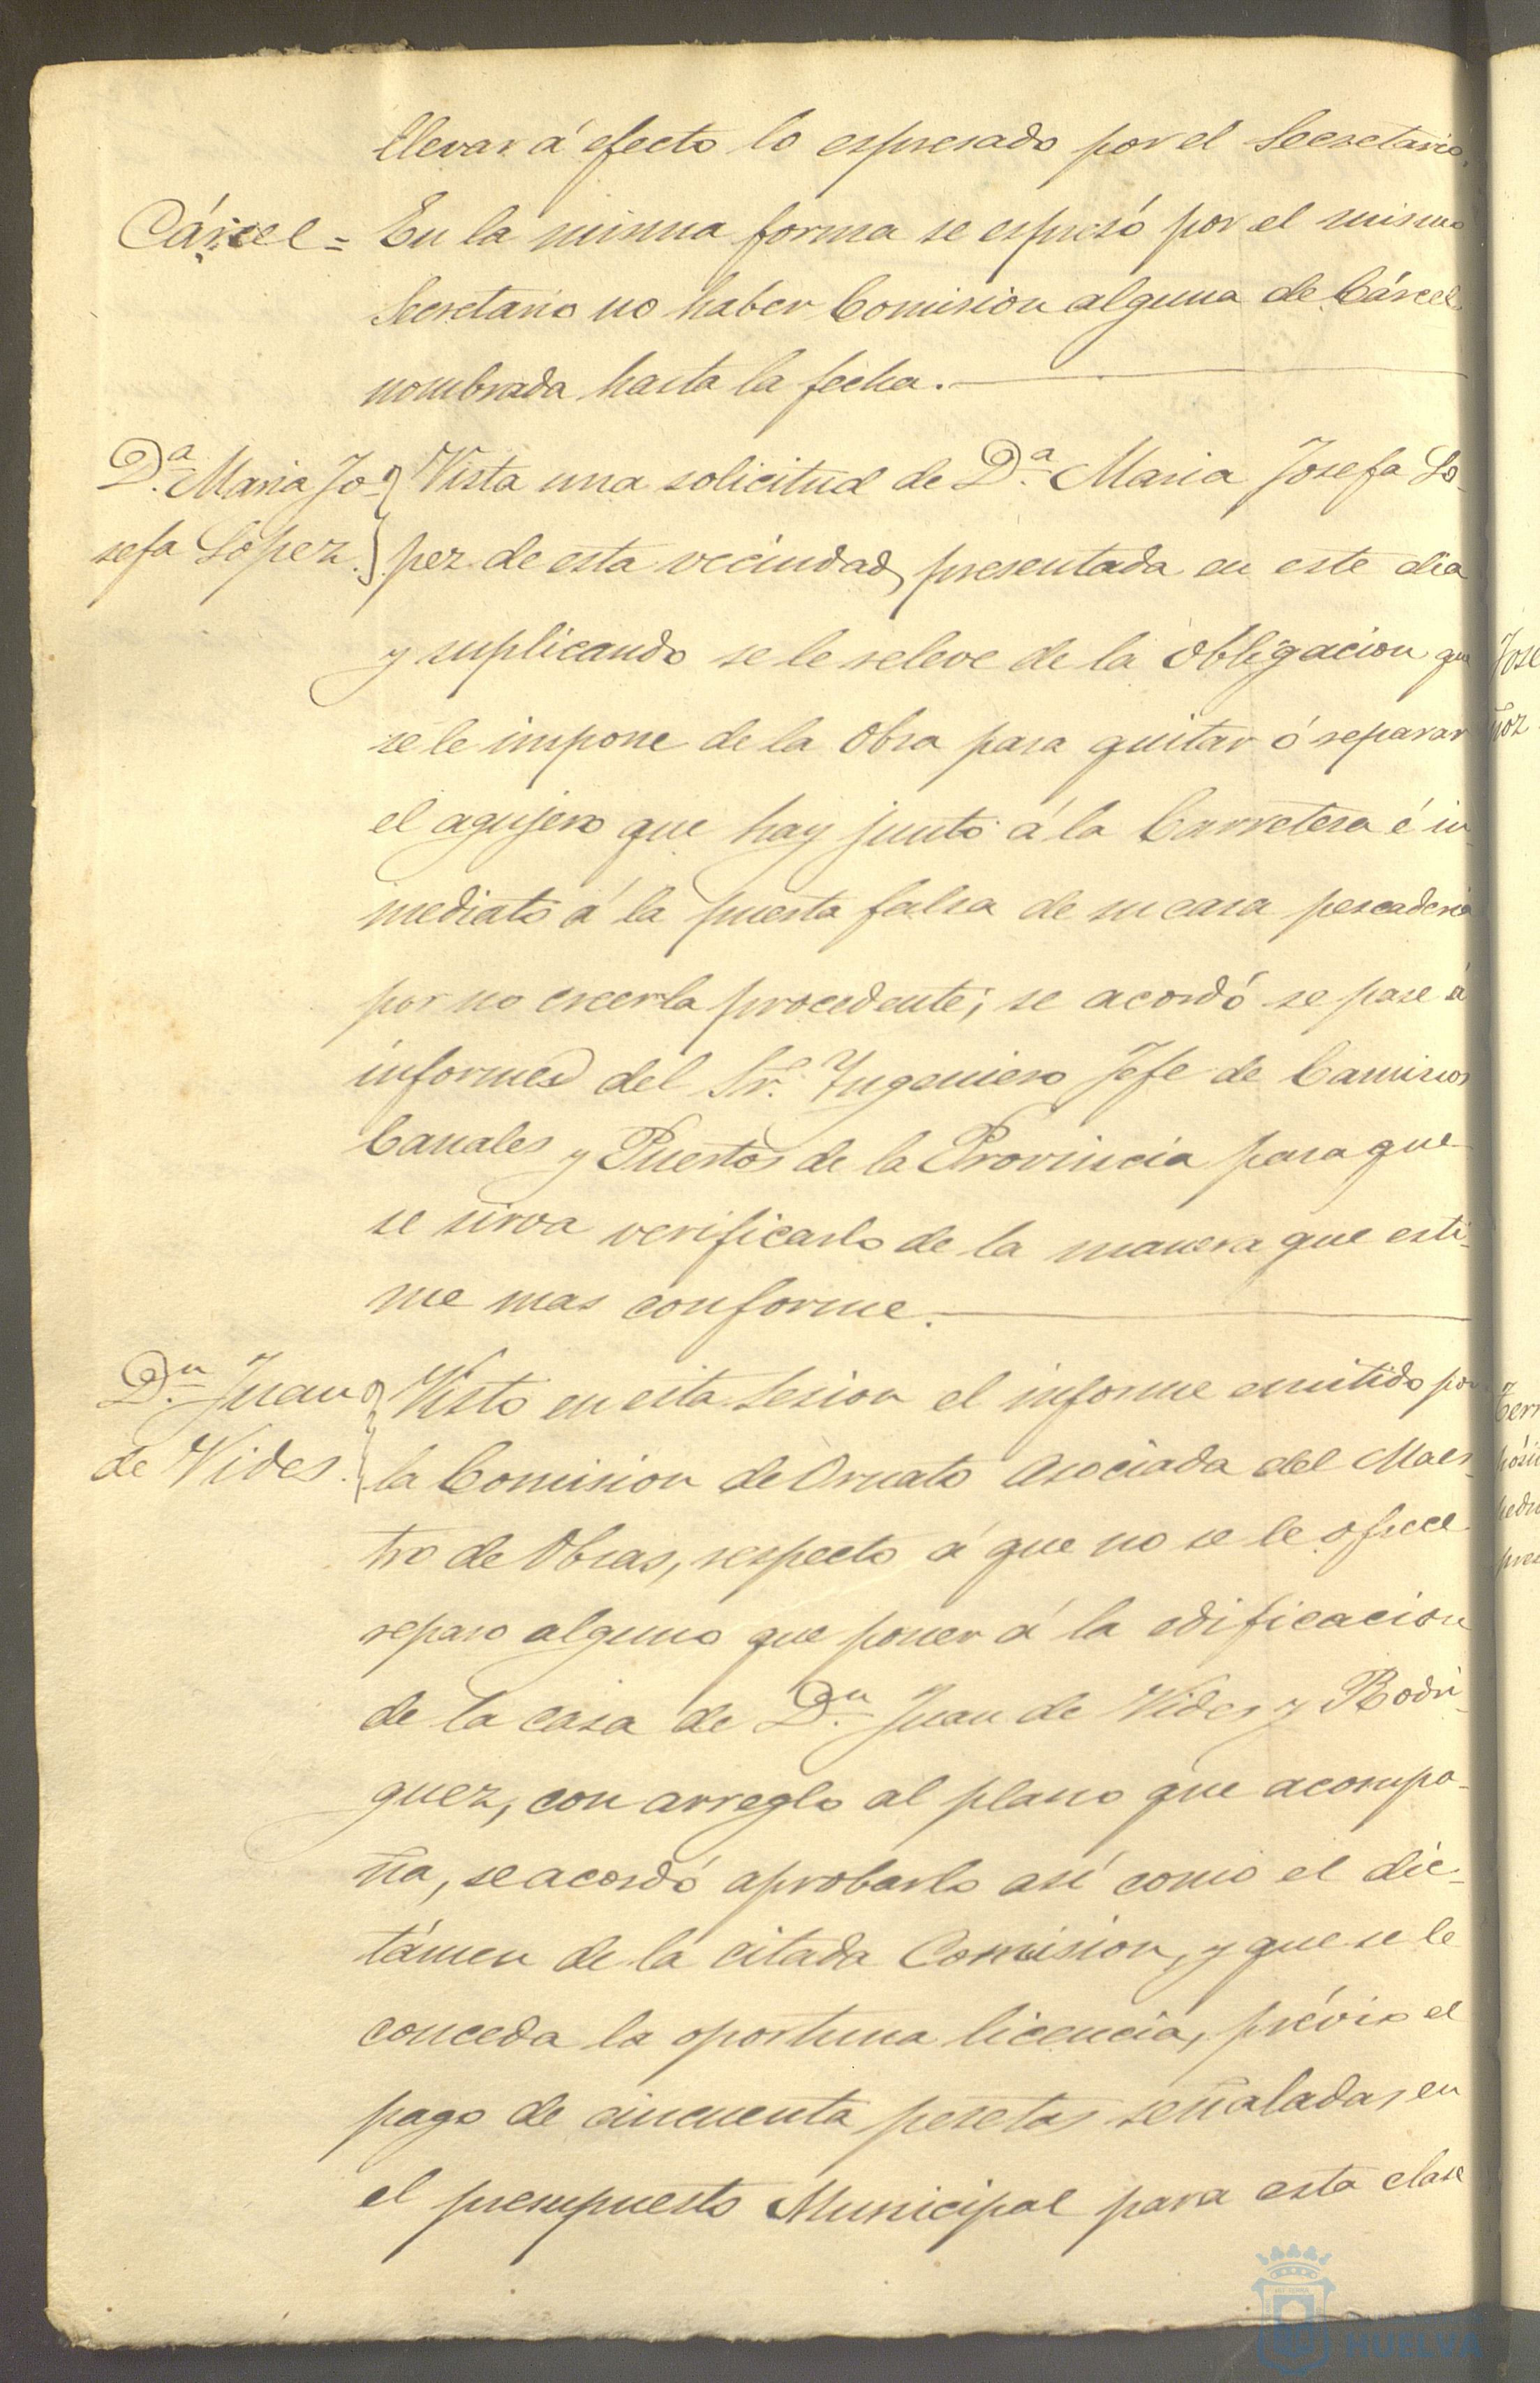 llevar á efecto lo espresado por el Secretario.
Cárcel = En la misma forma se espresó por el mismo
Secretario no haber Comision alguna de Cárcel
nombrada hasta la fecha.
D.ª Maria Jo- Vista una solicitud de D.ª Maria Josefa Lo-
sefa Lopez. pez de esta vecindad, presentada en este dia
y suplicando se le releve de la obligacion que
se le impone de la obra para quitar ó reparar
el agujero que hay junto á la Carretera é in-
mediato á la puerta falsa de su casa pescaderia
por no creerla procedente; se acordó se pase á
informes del Sr. Ingeniero Jefe de Caminos
Canales y Puertos de la Provincia para que
se sirva verificarlo de la manera que esti-
me mas conforme.
D.n Juan Visto en esta Sesion el informe emitido por
de Vides. la Comision de Ornato asociada del Maes-
tro de Obras, respecto á que no se le ofrece
reparo alguno que poner á la edificacion
de la casa de D.n Juan de Vides y Rodri-
guez, con arreglo al plano que acompa-
ña, se acordó aprobarlo así como el dic-
támen de la citada Comision, y que se le
conceda la oportuna licencia, prévio el
pago de cincuenta pesetas señaladas en
el presupuesto Municipal para esta clase
HUELVA